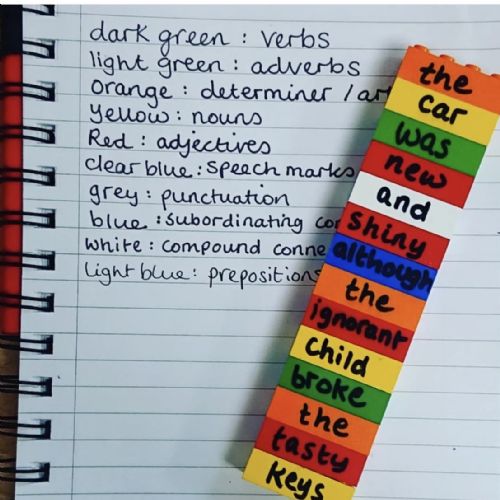 dark green : verbs
light green : adverbs
Orange : determiner / art
Yellow : nouns
Red : adjectives
clear blue : speech marks
grey : punctuation
blue : subordinating co
white : compound conne
light blue : prepositions
the
car
was
new
and
shiny
although
the
ignorant
child
broke
the
tasty
keys